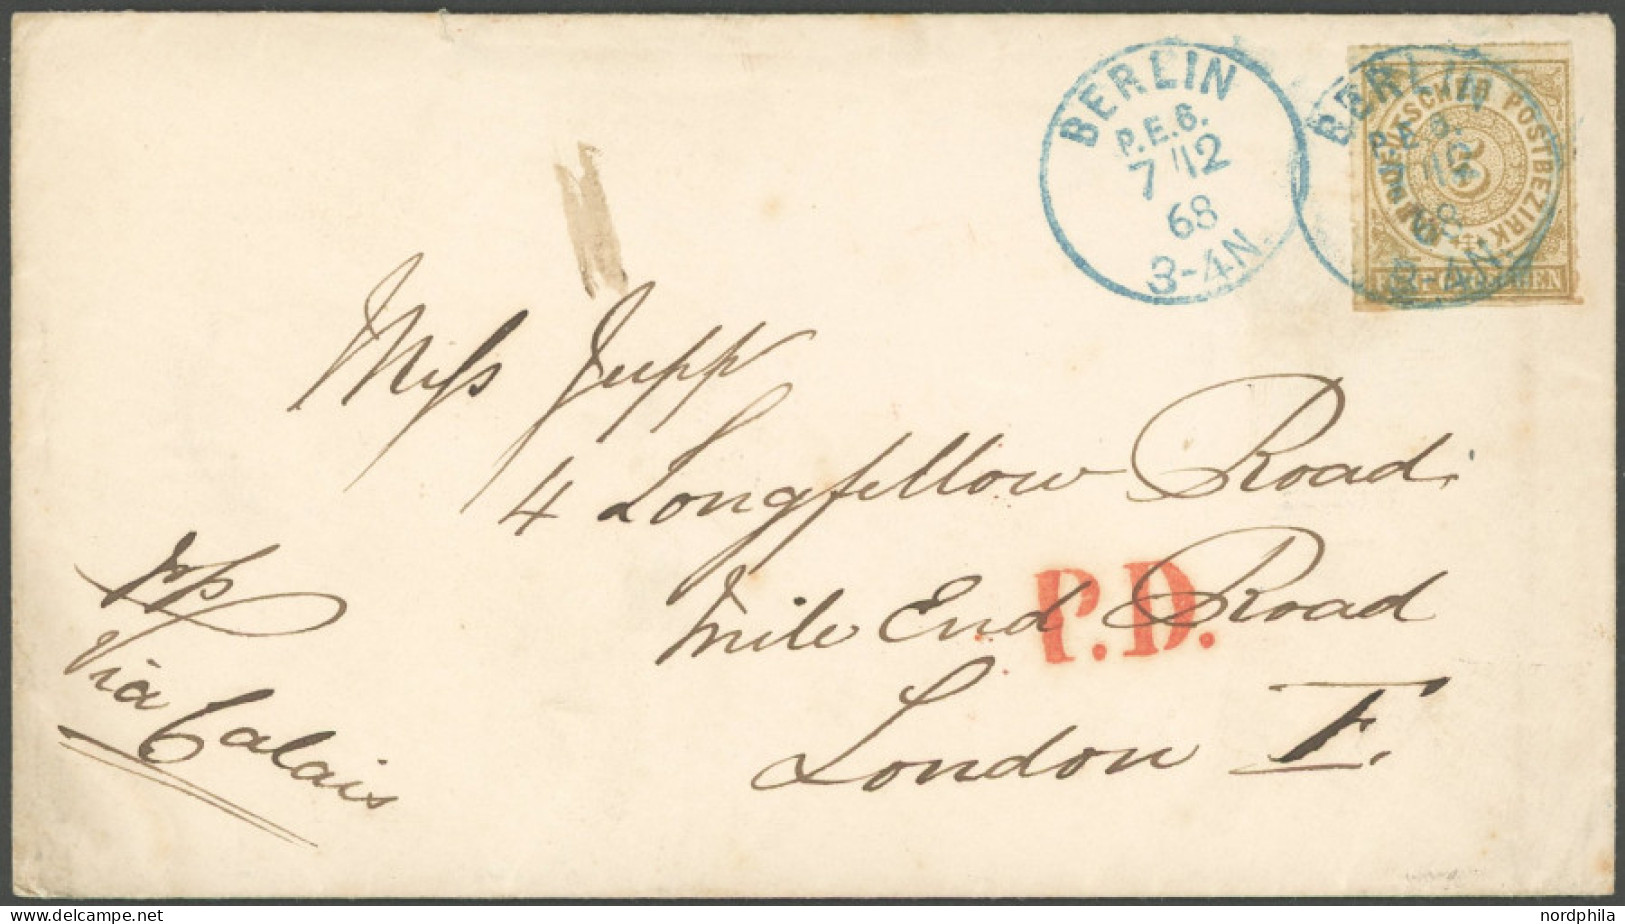 BERLIN
P.E.6.
7 12
68
3-4N.
BERLIN
P.E.6.
7 12
68
3-4N.
NORDDEUTSCHER POSTBEZIRK
5
FÜNF GROSCHEN
Miss Jupp
4 Longfellow Road.
Mile End Road
London E.
P.D.
Via Calais
delcampe.net
nordphila